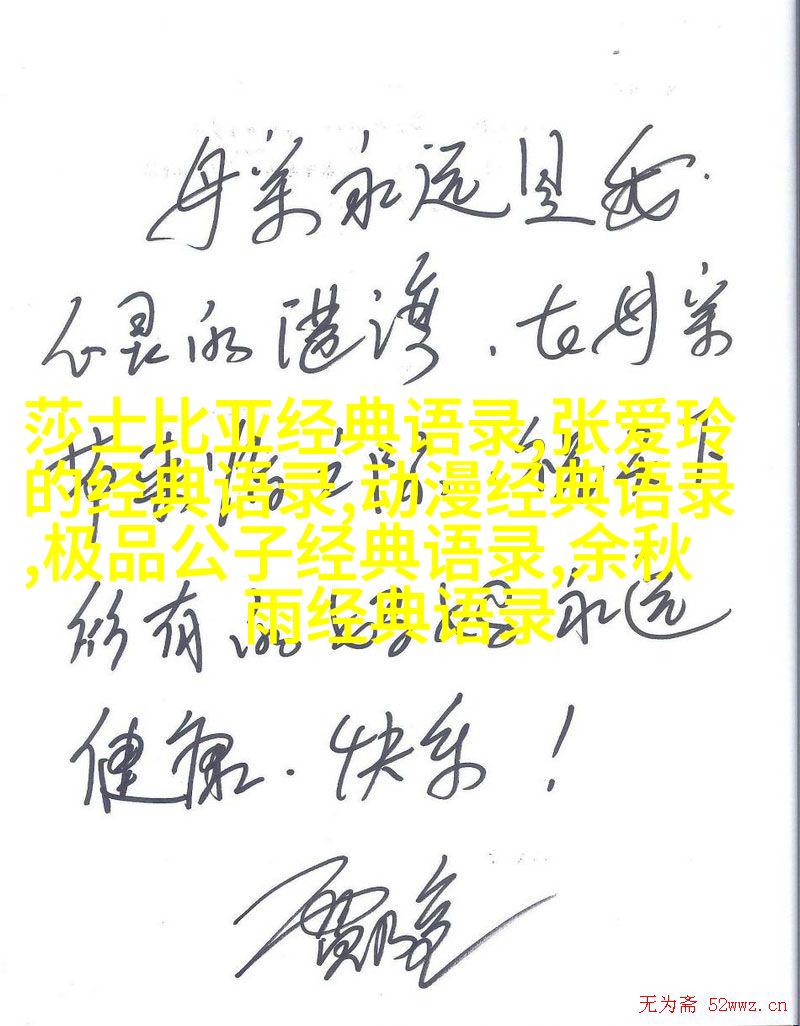 母亲永远是我
心灵的港湾、在母亲
莎士比亚经典语录,张爱玲
的经典语录,动漫经典语录
,极品公子经典语录,余秋
雨经典语录
下
所有的 永远
健康、快乐！
无为斋 52wwz.cn